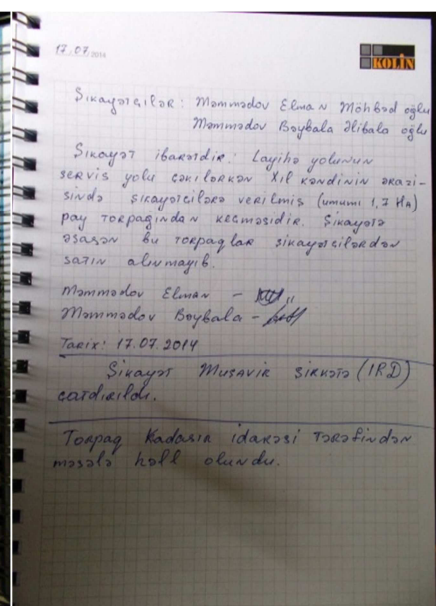 17.07.2014
KOLİN
Şikayətcilər: Məmmədov Elman Möhbəd oğlu
Məmmədov Bəybala Əlibala oğlu
Şikayət ibarətdir: Layihə yolunun
servis yolu cəkilərkən Xıl kəndinin ərazi-
sində şikayətcilərə verilmiş (umumi 1,7 Ha)
pay torpagından kecməsidir. Şikayətə
əsasən bu torpaqlar şikayətcilərdən
satın alınmayıb.
Məmmədov Elman –
Məmmədov Bəybala –
Tarix: 17.07.2014
Şikayət Musavir şirkətə (IRD)
catdırıldı.
Torpaq Kadastr idarəsi tərəfindən
məsələ həll olundu.